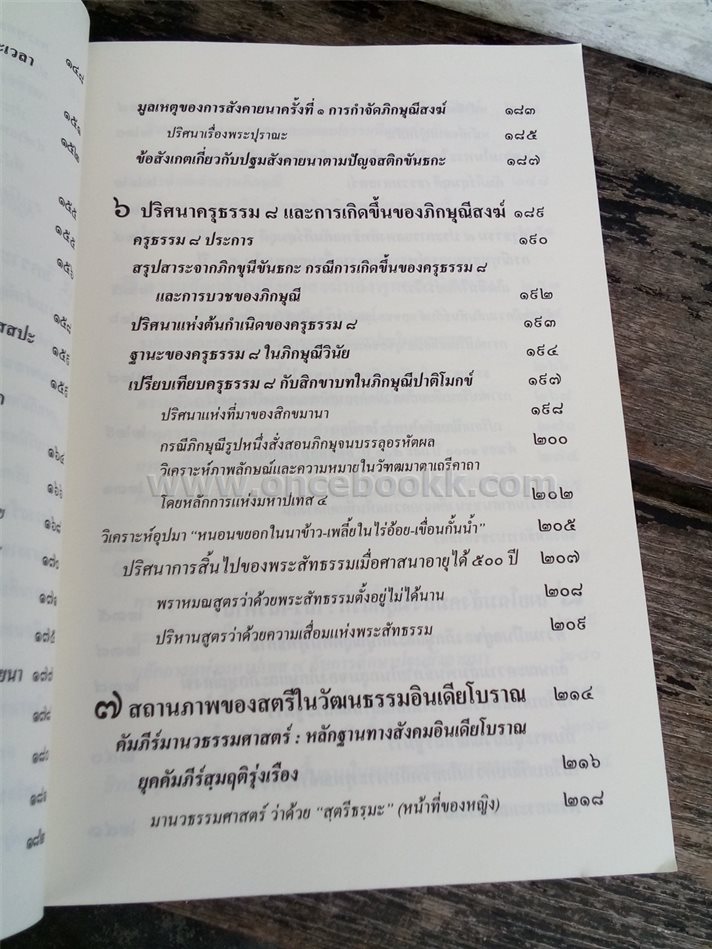 ะเวลา ๑๔๙
๑๕๑
๑๕๒
๑๕๕
๑๕๕
๑๕๖
๑๕๘
สสปะ
๑๖๔
๑๖๖
๑๖๘
๑๗๐
๑๗๑
๑๗๕
ยนา ๑๗๗
มูลเหตุของการสังคายนาครั้งที่ ๑ การกำจัดภิกษุณีสงฆ์ ๑๘๓
ปริศนาเรื่องพระปุราณะ ๑๘๕
ข้อสังเกตเกี่ยวกับปฐมสังคายนาตามปัญจสติกขันธกะ ๑๘๗
๖ ปริศนาครุธรรม ๘ และการเกิดขึ้นของภิกษุณีสงฆ์ ๑๘๙
ครุธรรม ๘ ประการ ๑๙๐
สรุปสาระจากภิกขุนีขันธกะ กรณีการเกิดขึ้นของครุธรรม ๘
และการบวชของภิกษุณี ๑๙๒
ปริศนาแห่งต้นกำเนิดของครุธรรม ๘ ๑๙๓
ฐานะของครุธรรม ๘ ในภิกษุณีวินัย ๑๙๔
เปรียบเทียบครุธรรม ๘ กับสิกขาบทในภิกษุณีปาติโมกข์ ๑๙๗
ปริศนาแห่งที่มาของสิกขมานา ๑๙๘
กรณีภิกษุณีรูปหนึ่งสั่งสอนภิกษุจนบรรลุอรหัตผล ๒๐๐
วิเคราะห์ภาพลักษณ์และความหมายในวัฑฒมาตาเถรีคาถา
โดยหลักการแห่งมหาปเทส ๔ ๒๐๒
www.oncebookk.com
วิเคราะห์อุปมา “หนอนขยอกในนาข้าว-เพลี้ยในไร่อ้อย-เขื่อนกั้นน้ำ” ๒๐๕
ปริศนาการสิ้นไปของพระสัทธรรมเมื่อศาสนาอายุได้ ๕๐๐ ปี ๒๐๗
พราหมณสูตรว่าด้วยพระสัทธรรมตั้งอยู่ไม่ได้นาน ๒๐๘
ปริหานสูตรว่าด้วยความเสื่อมแห่งพระสัทธรรม ๒๐๙
๗ สถานภาพของสตรีในวัฒนธรรมอินเดียโบราณ ๒๑๔
คัมภีร์มานวธรรมศาสตร์ : หลักฐานทางสังคมอินเดียโบราณ
ยุคคัมภีร์สฺมฤติรุ่งเรือง ๒๑๖
มานวธรรมศาสตร์ ว่าด้วย “สฺตรีธรฺมะ” (หน้าที่ของหญิง) ๒๑๘